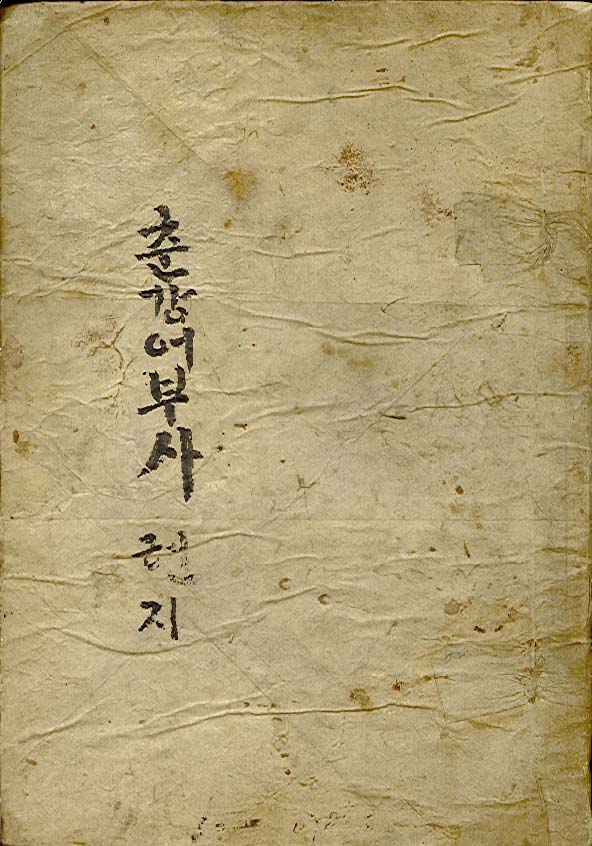 춘강어부사 권지